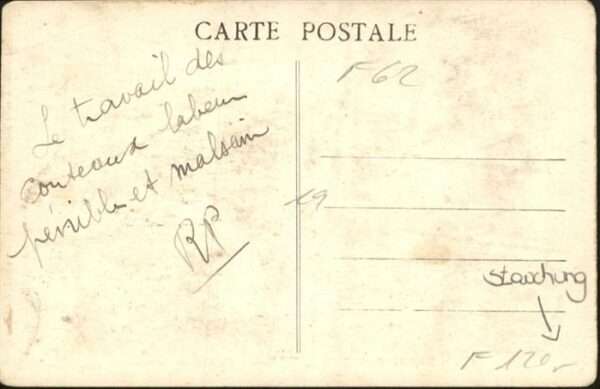 CARTE POSTALE
Le travail des
couteaux labeur
pénible et malsain
RP
F 62
19
Stauchung
F 120,-